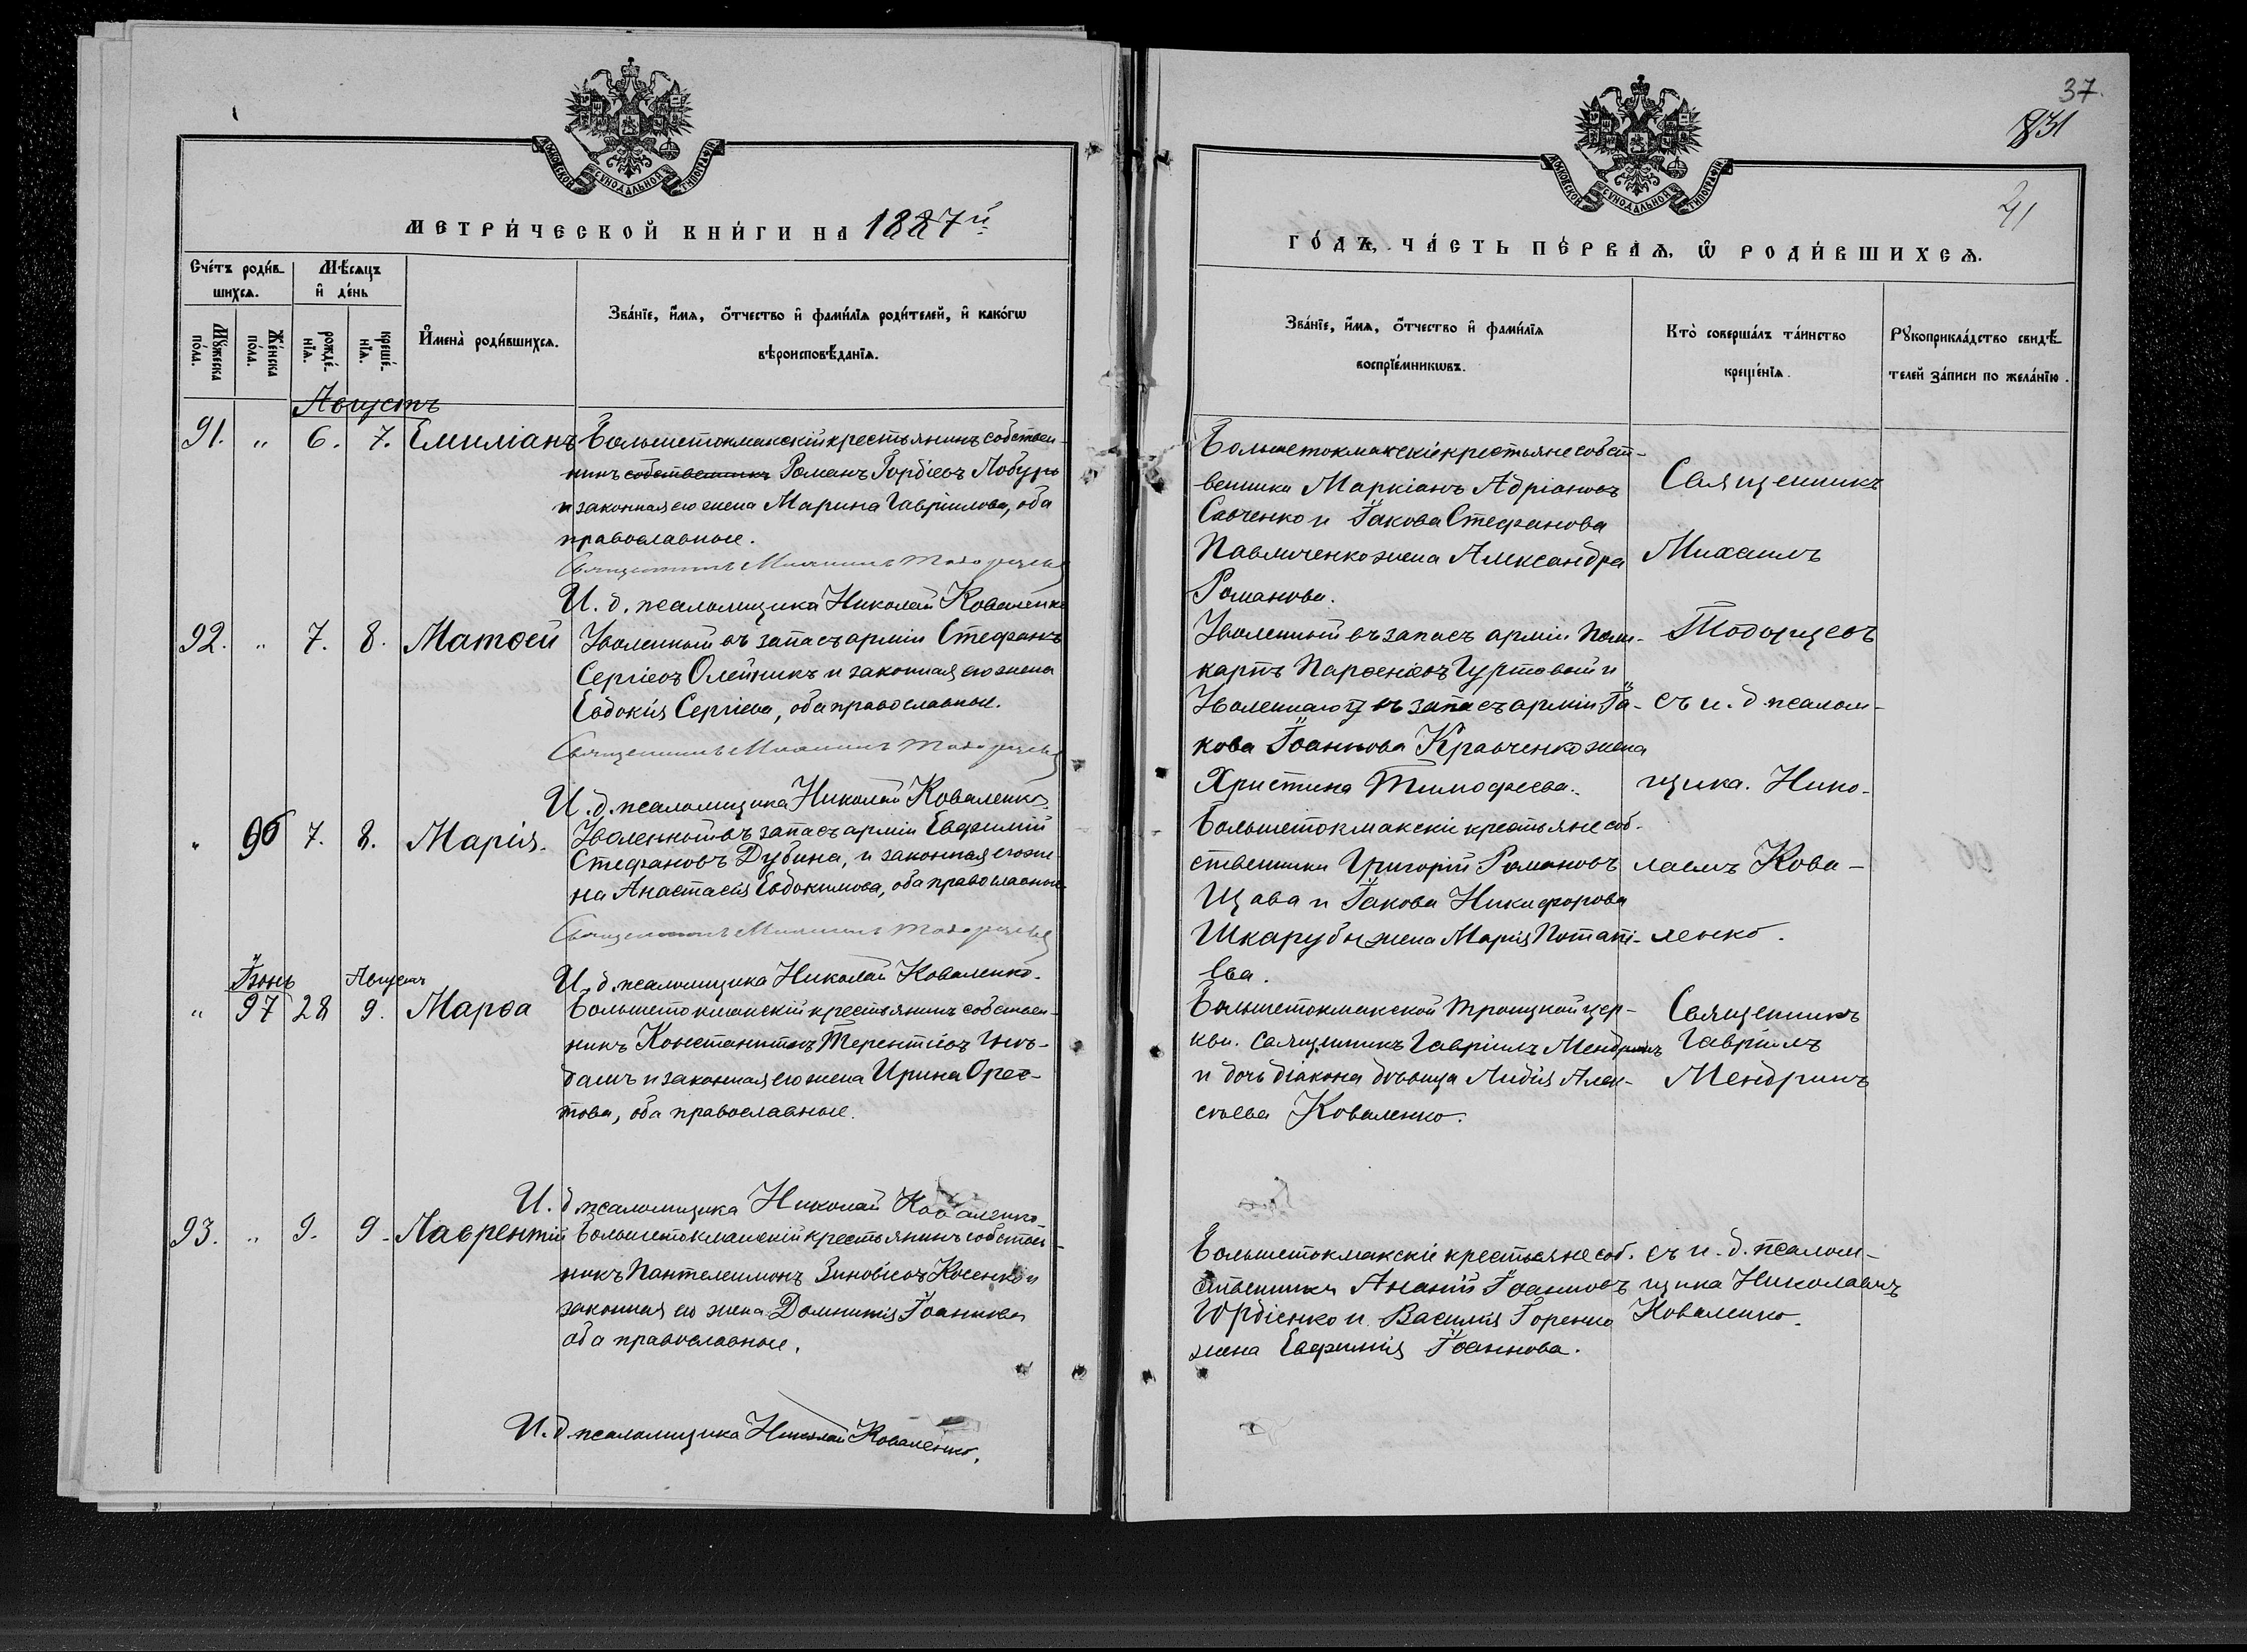 МОСКОВСКОЙ СѴНОДАЛЬНОЙ ТИПОГРАФІИ
МЕТРИ́ЧЕСКОЙ КНИ́ГИ НА 1887й
Сче́тъ роди́в-
шихсѧ.
Мѣ́сѧцъ
и҆ де́нь
Мꙋ́жеска
по́ла.
Же́нска
по́ла.
рожде́-
нїѧ.
креще́-
нїѧ.
И҆мена̀ роди́вшихсѧ.
Зва́нїе, и҆́мѧ, ѻ҆́тчество и҆ фами́лїѧ роди́телей, и҆ како́гѡ
вѣроисповѣ́данїѧ.
Августъ
91. " 6. 7. Емиліанъ Большетокмакскій крестьянинъ собствен-
никъ собственникъ Романъ Гордіевъ Лобуръ
и законная его жена Марина Гавріилова, оба
православные.
Священникъ Михаилъ Тодорцевъ
И. д. псаломщика Николай Коваленко
92. " 7. 8. Матѳей Уволенный въ запасъ арміи Стефанъ
Сергіевъ Олейникъ и законная его жена
Евдокія Сергіева, оба православные.
Священникъ Михаилъ Тодорцевъ
И. д. псаломщика Николай Коваленко
" 96 7. 8. Марія. Уволенный въ запасъ арміи Евфимій
Стефановъ Дубина, и законная его же-
на Анастасія Евдокимова, оба православные
Священникъ Михаилъ Тодорцевъ
И. д. псаломщика Николай Коваленко.
Іюнь Августъ
" 97 28 9. Марѳа Большетокмакскій крестьянинъ собствен-
никъ Константинъ Терентіевъ Гнѣ-
дашъ и законная его жена Ирина Орес-
това, оба православные.
И. д. псаломщика Николай Коваленко
93. " 9. 9. Лаврентій Большетокмакскій крестьянинъ собствен-
никъ Пантелеимонъ Зиновіевъ Косенко и
законная его жена Домнитія Іоаннова
оба православные.
И. д. псаломщика Николай Коваленко.
37.
831
41
МОСКОВСКОЙ СѴНОДАЛЬНОЙ ТИПОГРАФІИ
ГО́ДЪ, ЧА́СТЬ ПЕ́РВАѦ, Ѡ҆ РОДИ́ВШИХСѦ.
Зва́нїе, и҆́мѧ, ѻ҆́тчество и҆ фами́лїѧ
воспрїе́мникѡвъ.
Кто̀ соверша́лъ та́инство
креще́нїѧ.
Рꙋкоприкла́дство свидѣ́-
телей за́писи по жела́нїю.
Большетокмакскіе крестьяне собст-
венники Маркіанъ Адріановъ
Савченко и Іакова Стефанова
Павличенко жена Александра
Романова.
Уволенный въ запасъ арміи Поли-
карпъ Парѳеніевъ Гуртовый и
Уволеннаго въ запасъ арміи Іа-
кова Іоаннова Кравченко жена
Христина Тимофеева.
Большетокмакскіе крестьяне соб-
ственники Григорій Романовъ
Щава и Іакова Никифорова
Шкарубы жена Марія Потапі-
ева.
Священникъ
Михаилъ
Тодорцевъ
съ и. д. псалом-
щика. Нико-
лаемъ Кова-
ленко.
Большетокмакской Троицкой цер-
кви. Священникъ Гавріилъ Мендринъ
и дочь діакона дѣвица Лидія Алек-
сѣева Коваленко.
Священникъ
Гавріилъ
Мендринъ
Большетокмакскіе крестьяне соб-
ственники Ананій Іоанновъ
Юрдіенко и Василія Горенко
жена Евфимія Іоаннова.
съ и. д. псалом-
щика Николаемъ
Коваленко.